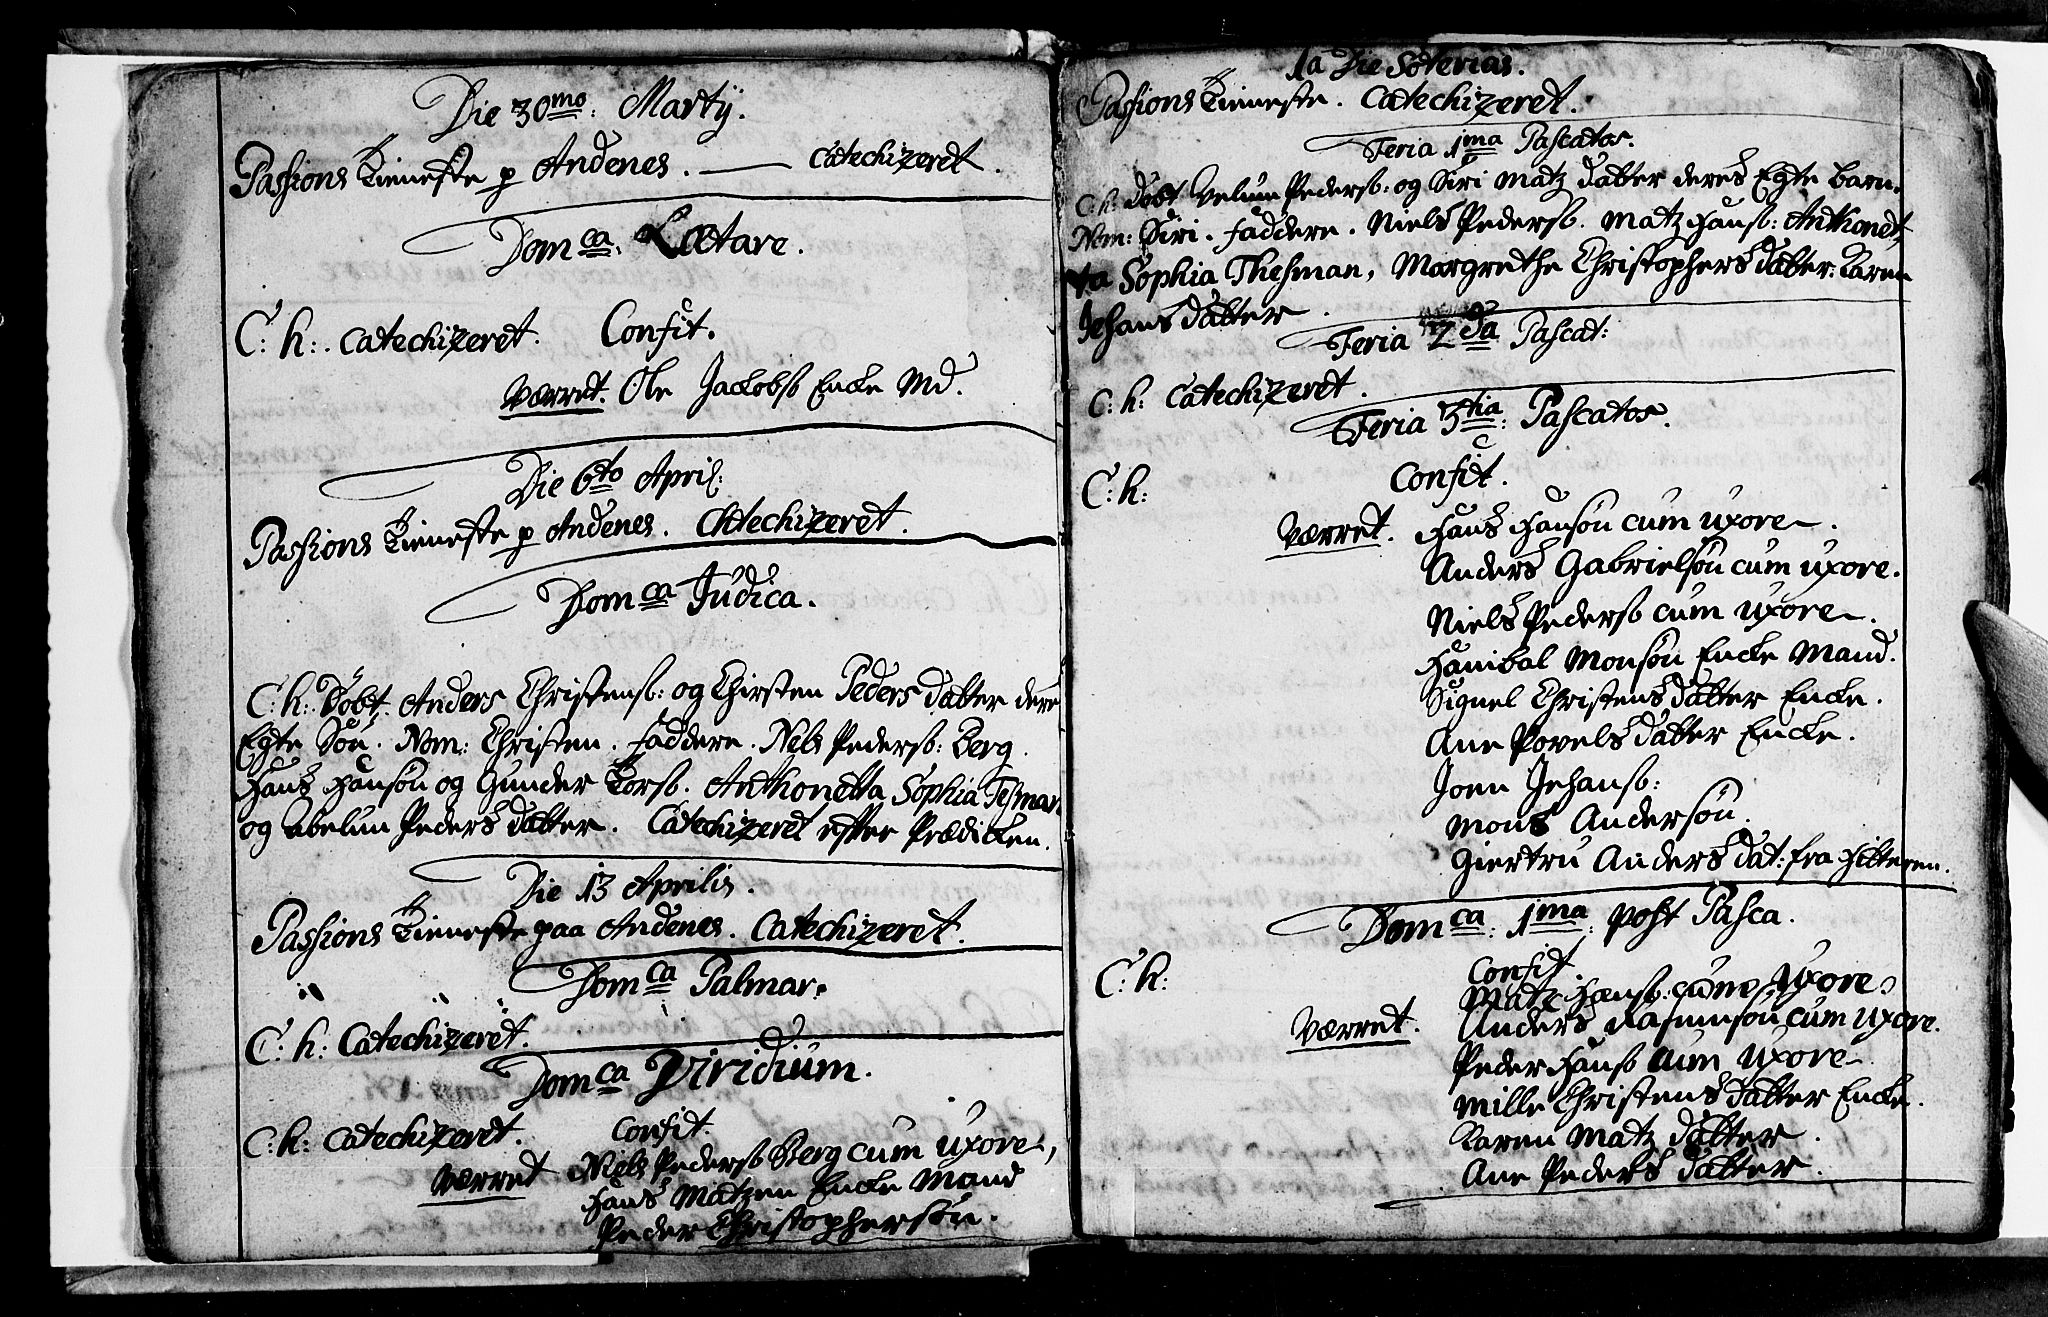 Die 30mo: Martij.
Passions Tieneste p Andenes. — Catechizeret.
Domca. Lætare.
C: h: Catechizeret. Confit.
Værret. Ole Jackobs Encke Md.
Die 6to April:
Passions Tieneste p Andenes. Catechizeret.
Domca Judica.
C: h: Döbt. Anders Christens: og Chirsten Peders Datter dere
Egte Sön. Nom: Christen. Faddere. Nels Peders: Berg.
Hans Hansön og Gunder Tors. Anthonetta Sophia Tesman
og Abelun Peders Datter. Catechizeret efter Prædicken.
Die 13 Aprilis.
Passions Tieneste paa Andenes. Catechizeret.
Domca Palmar.
C: h: Catechizeret.
Domca Viridium.
C: h: Catechizeret. Confit.
Værret Niels Peders Berg cum uxore,
Hans Matzen Encke Mand
Peder Christophersön.
1a Die Soterias.
Passions Tieneste. Catechizeret.
Feria 1ma Pascatos.
C: h: Döbt Velum Peders: og Siri Matz Datter deres Egte barn.
Nom: Siri. Faddere. Niels Peders. Matz Hans: Anthonet
ta Sophia Thesman, Margrethe Christophers Datter: Karen
Jehans Datter.
Feria 2da Pascat:
C: h: Catechizeret.
Feria 3tia: Pascatos.
C: h: Confit.
Værret. Hans Hansön cum uxore.
Anders Gabrielsön cum uxore.
Niels Peders cum uxore.
Hanibal Monsön Encke Mand.
Signel Christens Datter Encke.
Ane Povels Datter Encke.
Joen Jehans:
Mons Andersön.
Giertru Anders Dat: fra Hilteren.
Domca: 1ma: post Pasca.
C: h: Confit.
Matz Hans: cum Uxore
Værret. Anders Rasmusön cum uxore.
Peder Hans cum Uxore
Mille Christens Datter Encke.
Karen Matz Datter.
Ane Peders Datter.